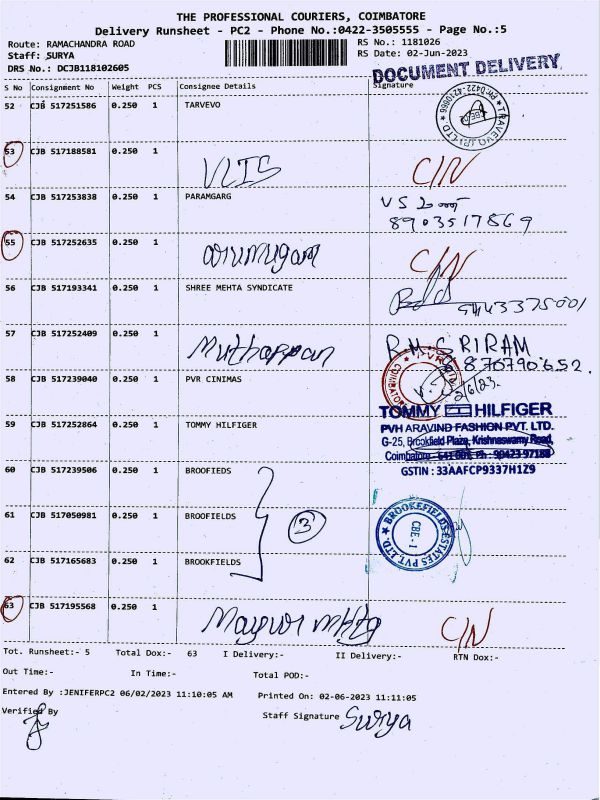 THE PROFESSIONAL COURIERS, COIMBATORE
Delivery Runsheet - PC2 - Phone No.:0422-3505555 - Page No.:5
Route: RAMACHANDRA ROAD
RS No.: 1181026
Staff: SURYA
RS Date: 02-Jun-2023
DRS No.: DCJB118102605
DOCUMENT DELIVERY
S No Consignment No Weight PCS Consignee Details Signature
52 CJB 517251586 0.250 1 TARVEVO
53 CJB 517188581 0.250 1
C/N
54 CJB 517253838 0.250 1 PARAMGARG
8903517869
55 CJB 517252635 0.250 1
arumugam C/N
56 CJB 517193341 0.250 1 SHREE MEHTA SYNDICATE
9443375001
57 CJB 517252409 0.250 1
Muthappan R.M.SRIRAM
870790652.
58 CJB 517239040 0.250 1 PVR CINIMAS
2/6/23.
59 CJB 517252864 0.250 1 TOMMY HILFIGER
TOMMY HILFIGER
PVH ARAVIND FASHION PVT. LTD.
G-25, Brookfield Plaza, Krishnaswamy Road,
Coimbatore - 641 001. Ph : 90423 97188
GSTIN : 33AAFCP9337H1Z9
60 CJB 517239506 0.250 1 BROOFIEDS
61 CJB 517050981 0.250 1 BROOFIELDS
3
BROOKEFIELDS ESTATES PVT. LTD.
CBE-1
62 CJB 517165683 0.250 1 BROOKFIELDS
63 CJB 517195568 0.250 1
C/N
Tot. Runsheet:- 5 Total Dox:- 63 I Delivery:- II Delivery:- RTN Dox:-
Out Time:- In Time:- Total POD:-
Entered By :JENIFERPC2 06/02/2023 11:10:05 AM Printed On: 02-06-2023 11:11:05
Verified By Staff Signature Surya